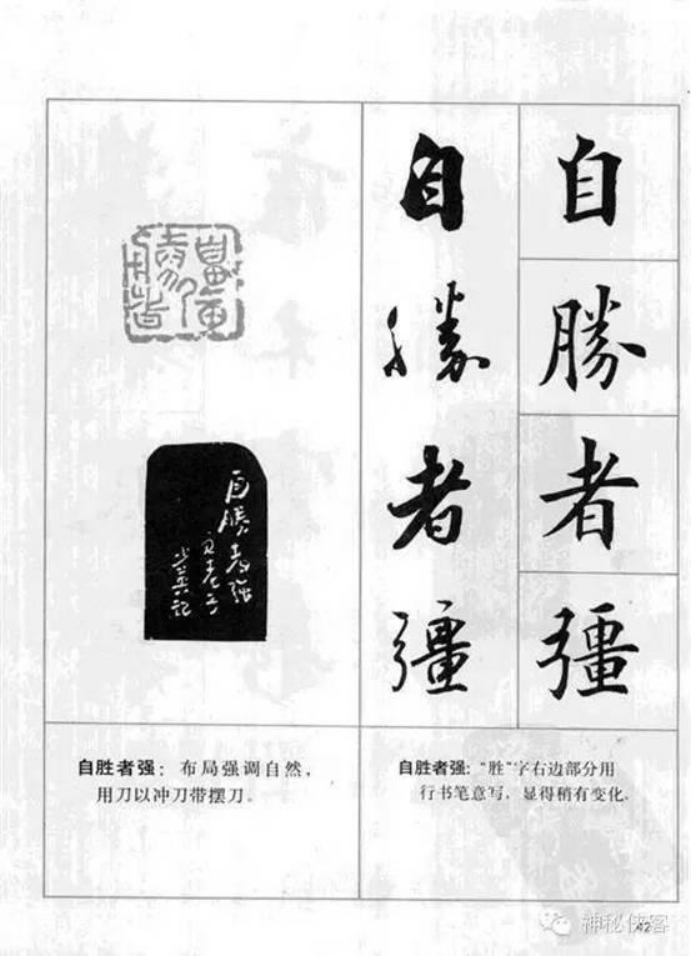 自勝者彊
自勝者彊
自勝者強
自胜者强：布局强调自然，
用刀以冲刀带摆刀。
自胜者强：“胜”字右边部分用
行书笔意写，显得稍有变化。
神秘侠客
42